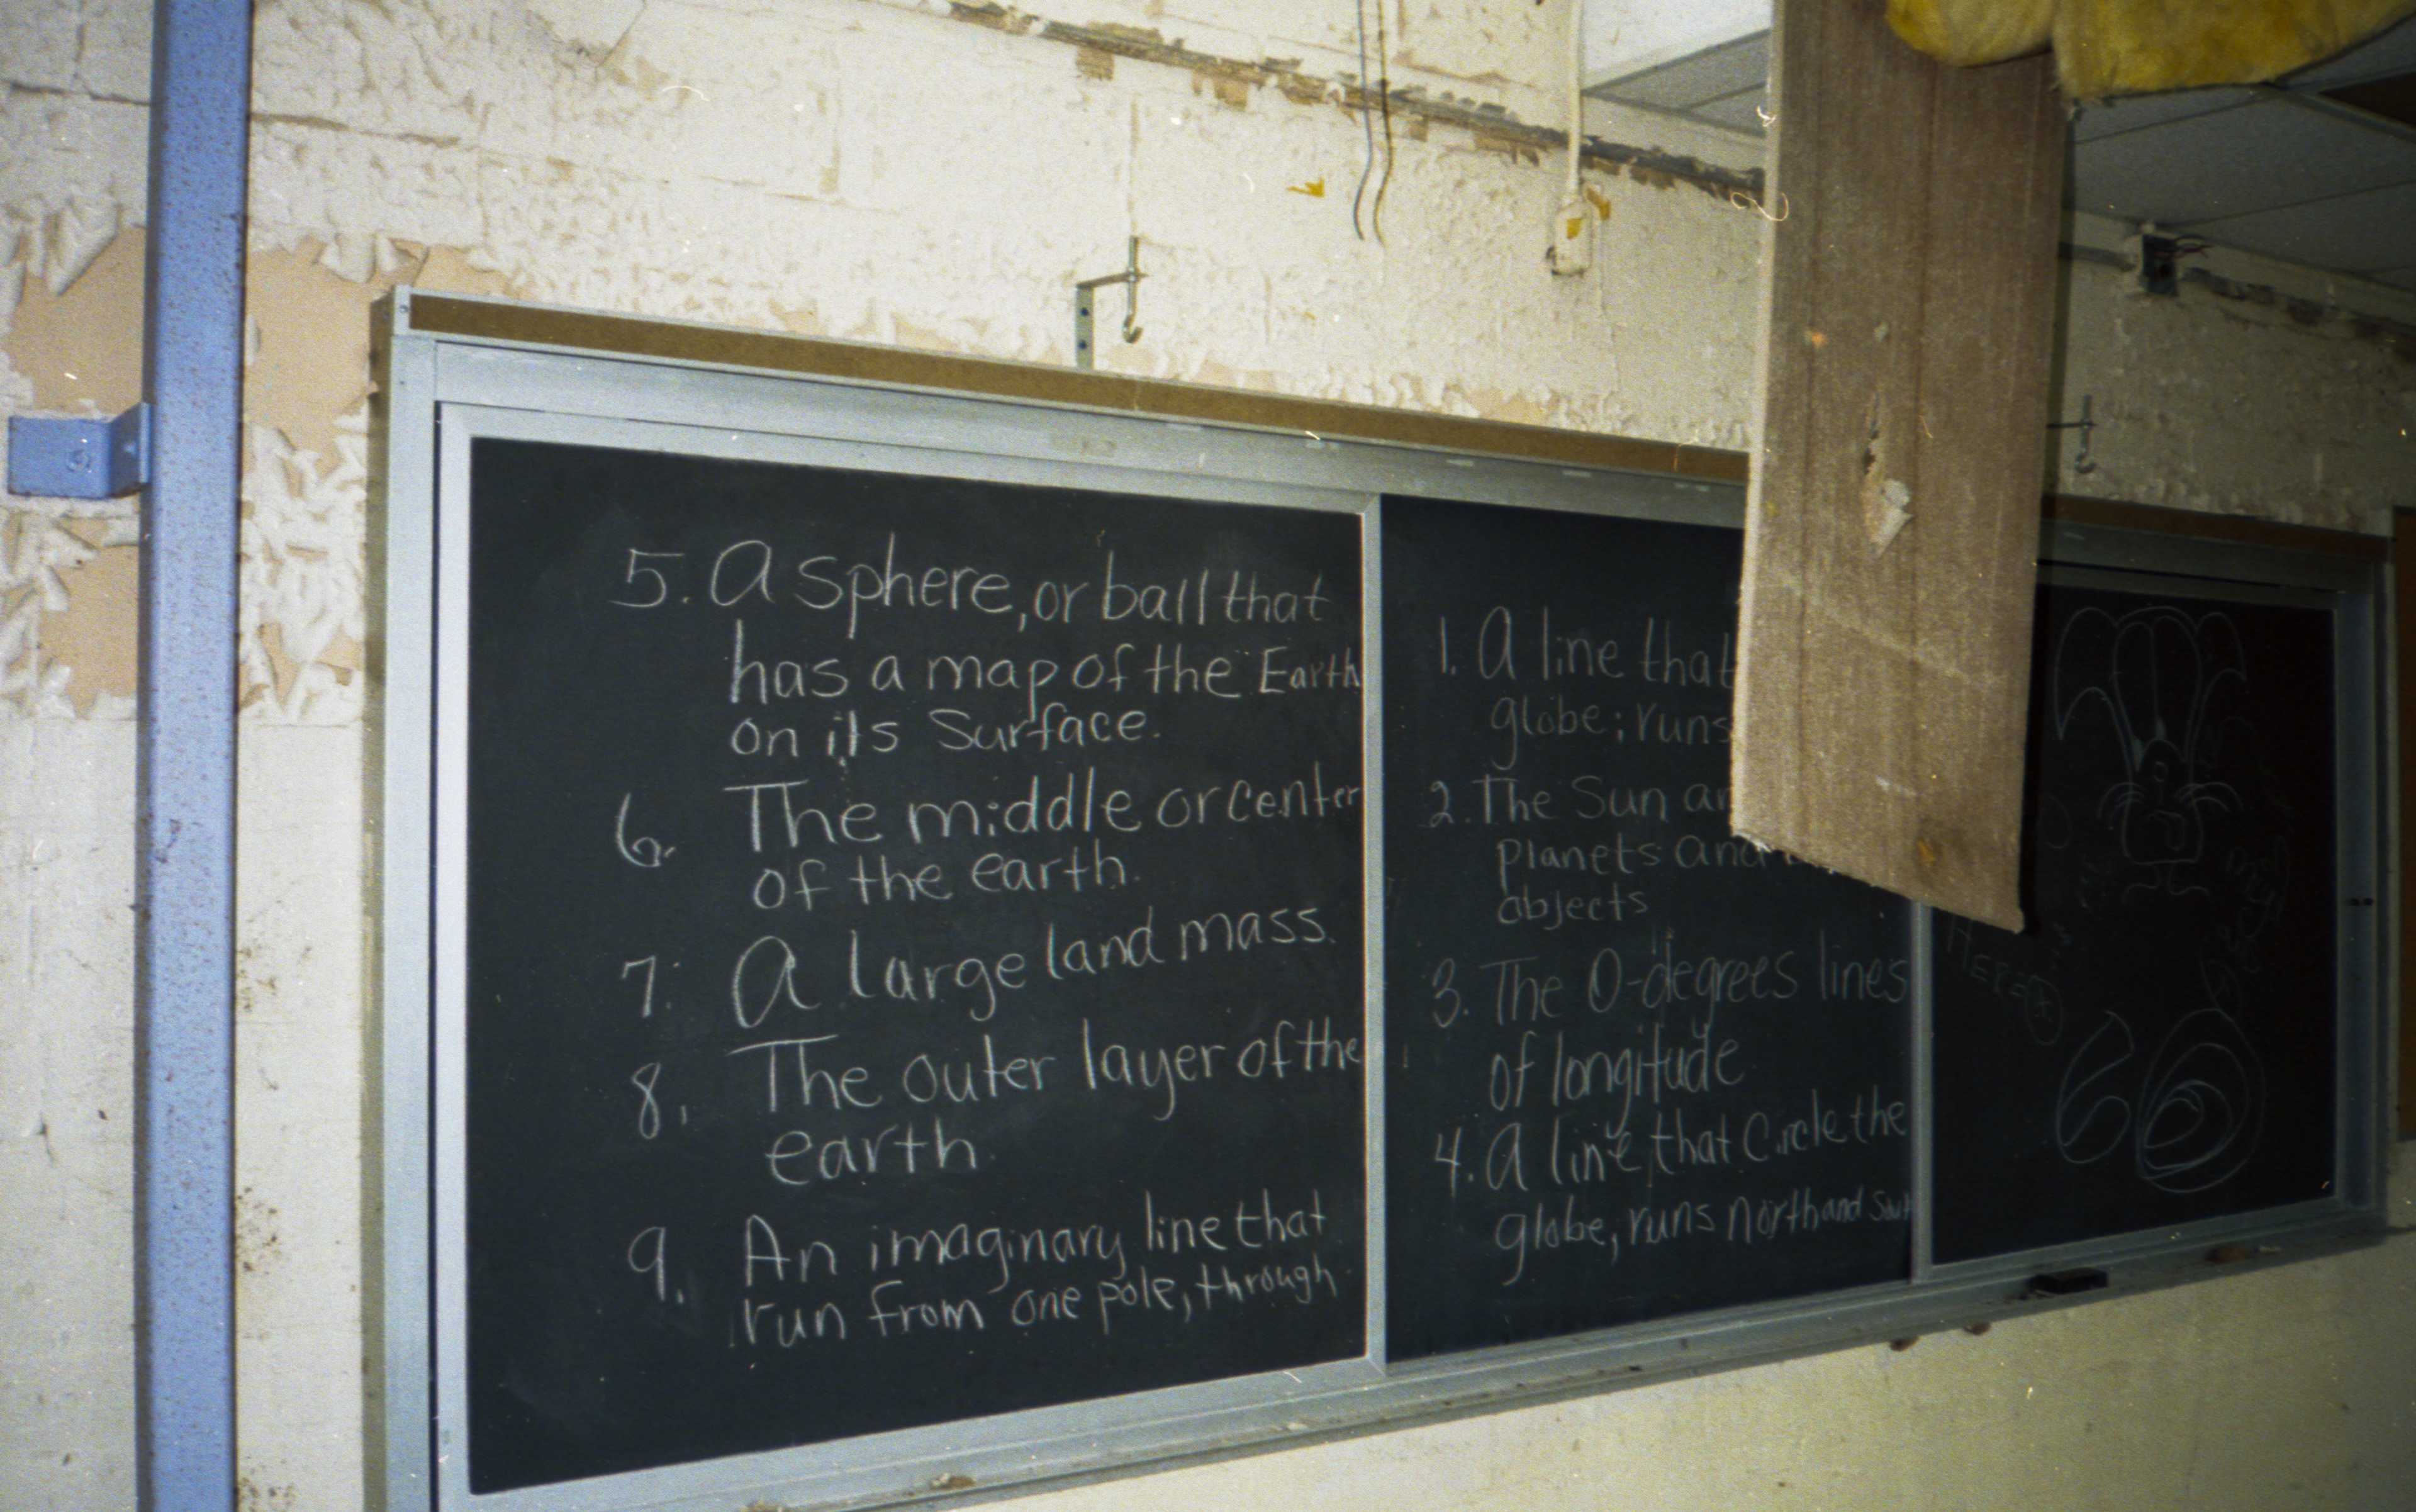 5. A sphere, or ball that
has a map of the Earth
on its Surface.
6. The middle or center
of the earth.
7. A large land mass.
8. The outer layer of the
earth
9. An imaginary line that
run from one pole, through
1. A line that
globe; runs
2. The Sun
planets and
objects
3. The 0-degrees lines
of longitude
4. A line that Circle the
globe, runs north and South
HERE